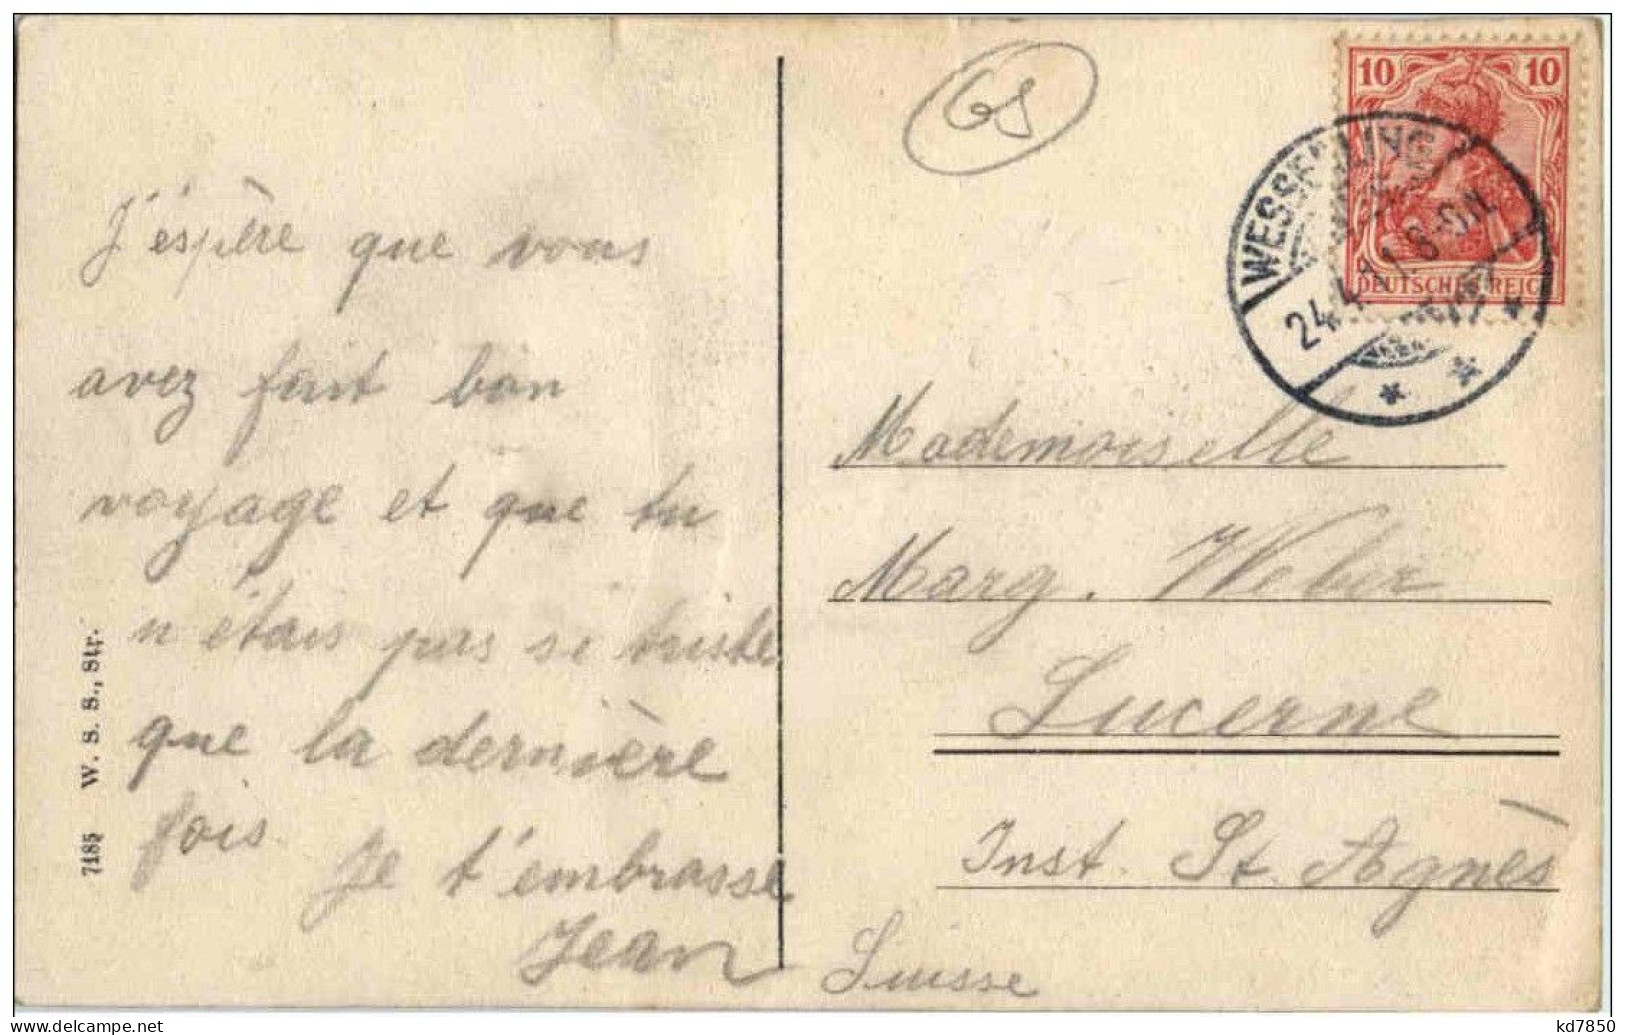 J'espère que vous
avez fait bon
voyage et que tu
n'étais pas si triste
que la dernière
fois. Je t'embrasse
Jean
7185 W. S. S., Str.
GS
10 10
DEUTSCHES REICH
WESSERLING
24.4.11.8-9N.
* * *
Mademoiselle
Marg. Weber
Lucerne
Inst. St. Agnès
Suisse
kd7850